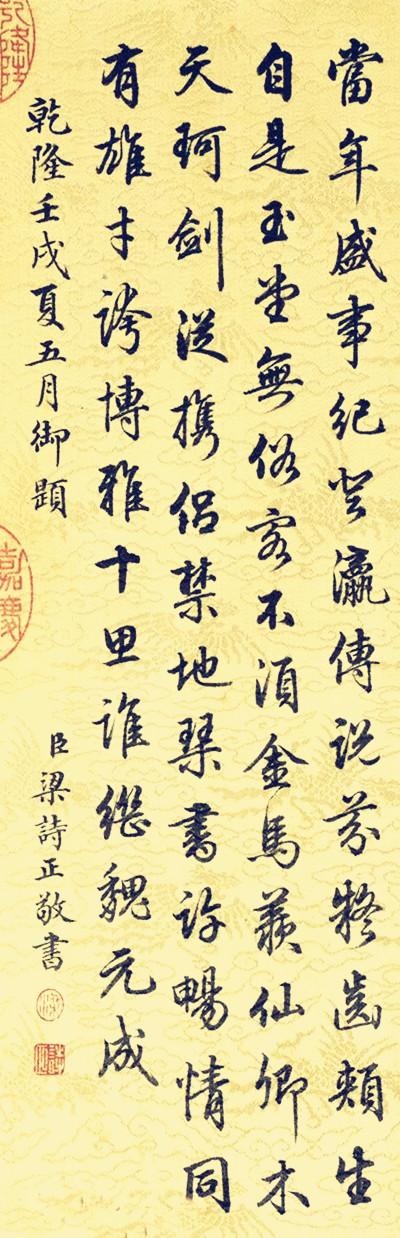 當年盛事紀登瀛傳說芬凝齒頰生
自是玉堂無俗客不須金馬羨仙卿木
天珂劍從攜侶禁地琴書許暢情同
有雄才誇博雅十思誰繼魏元成
乾隆壬戌夏五月御題
臣梁詩正敬書
乾隆
嘉慶